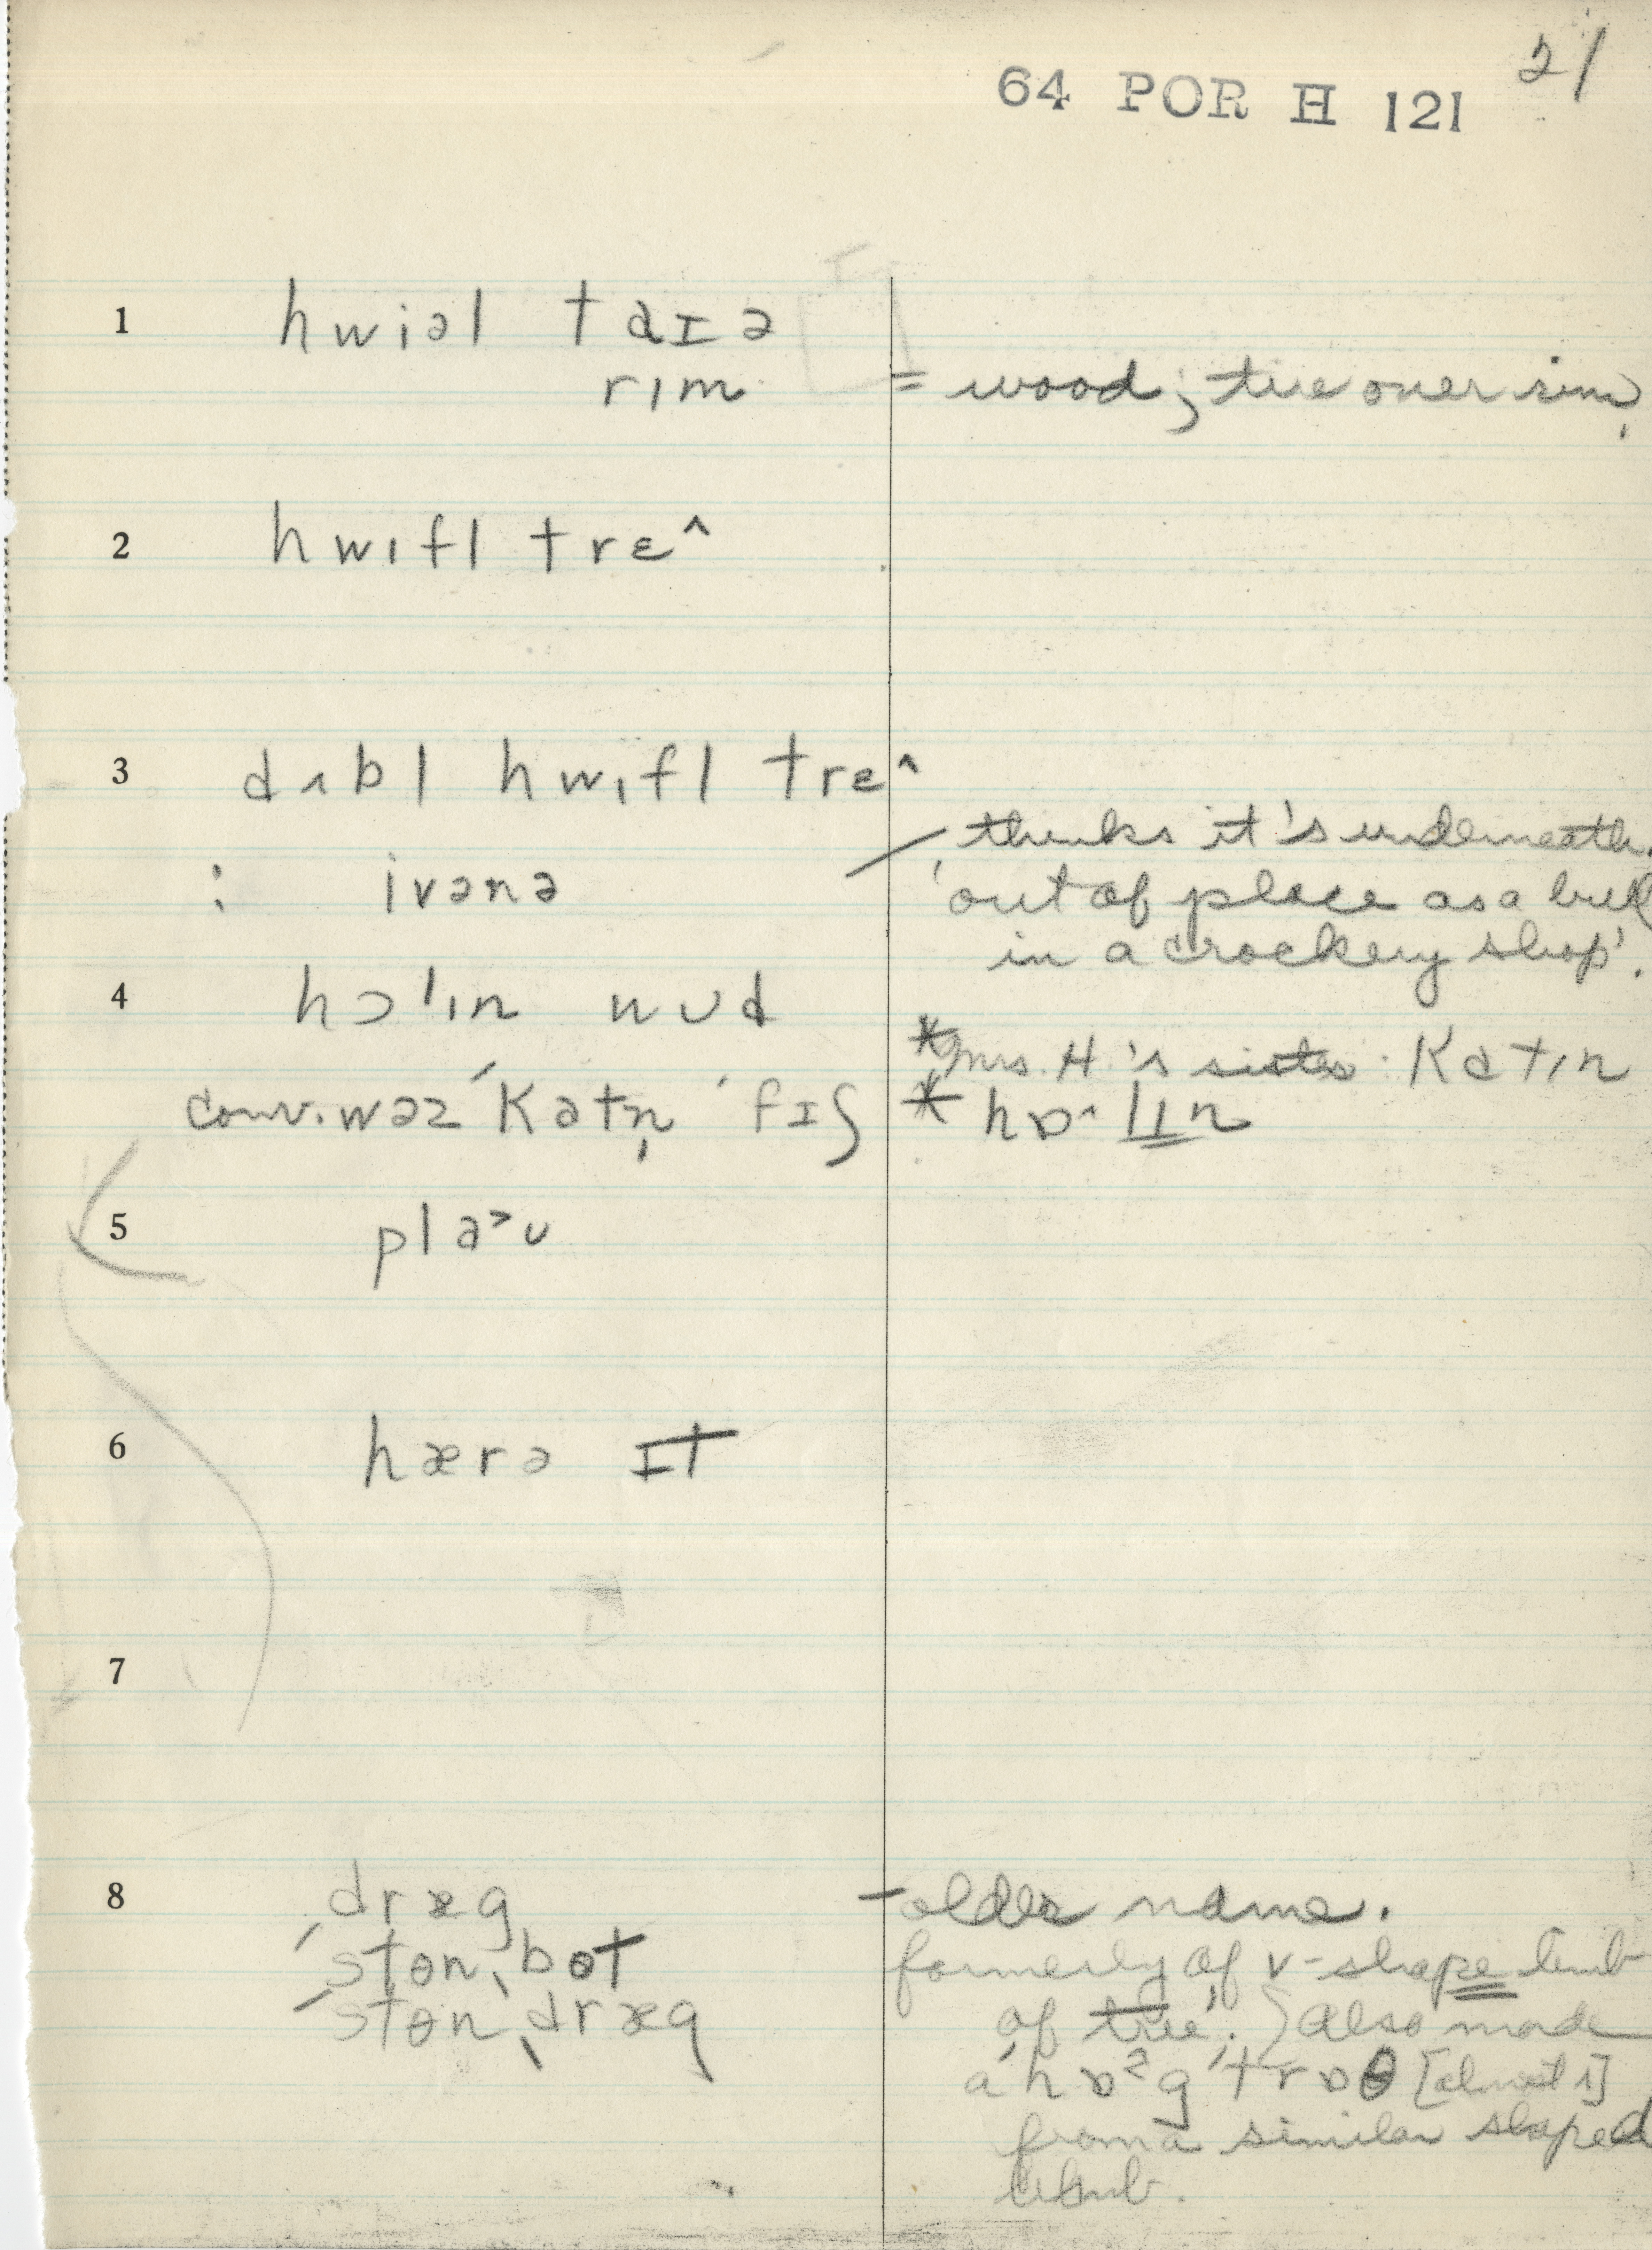 21
64 POR H 121
1 hwiəl taɪə
rɪm = wood; tire over rim,
2 hwɪfl trɛ^
3 dʌbl hwɪfl trɛ^
thinks it's underneath.
: ivənə 'out of place as a bull
in a crockery shop'.
4 hɔ'lɪn wʊd
*Mrs. H.'s sister: Katɪn
conv. wəz 'Katn̩ 'fɪʃ * hɒ^lɪn
5 pla>ʊ
6 hærə ɪt
7
8 dræg – older name.
'ston ˌbot formerly of 'v-shape limb
'ston ˌdræg of tree'. Also made
a 'hɒ²g 'trɒθ [almost s]
from a similar shaped
limb.